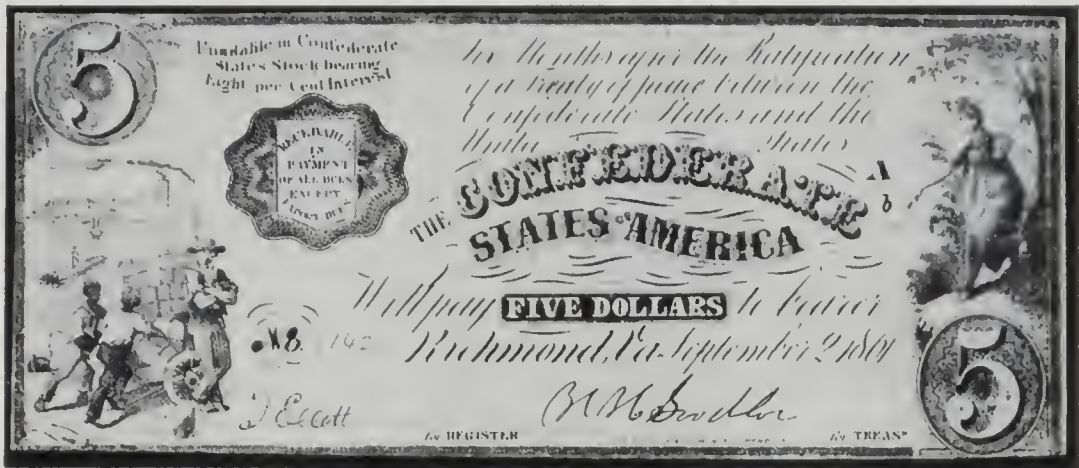 5
Fundable in Confederate
States Stock bearing
Eight per Cent Interest
RECEIVABLE
IN
PAYMENT
OF ALL DUES
EXCEPT
EXPORT DUES
Six Months after the Ratification
of a treaty of peace between the
Confederate States and the
United States
A
THE CONFEDERATE
STATES OF AMERICA
Will pay FIVE DOLLARS to bearer
Richmond, Va. September 2, 1861
No.
for REGISTER
for TREASR
5